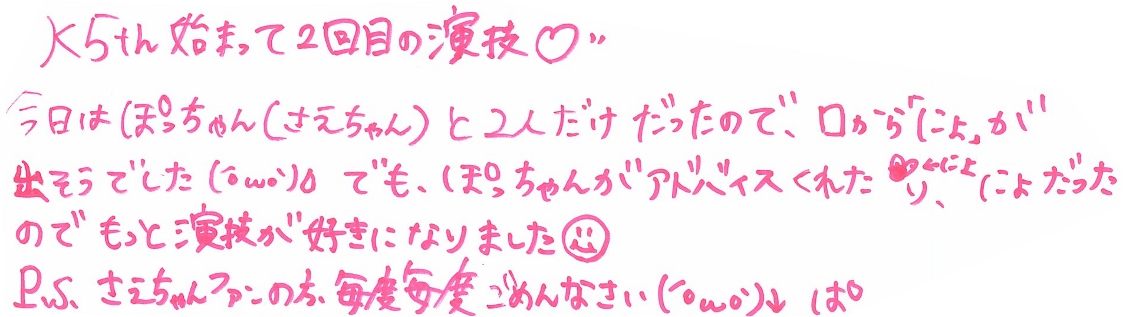 K5th 始まって2回目の演技♡"
今日はぽっちゃん(さえちゃん)と2人だけだったので、口から「にょ」が
出そうでした(´ω`)δ でも、ぽっちゃんがアドバイスくれたり、にょだった
のでもっと演技が好きになりました☺
P.S. さえちゃんファンの方、毎度毎度ごめんなさい(´ω`)↓ ぱ